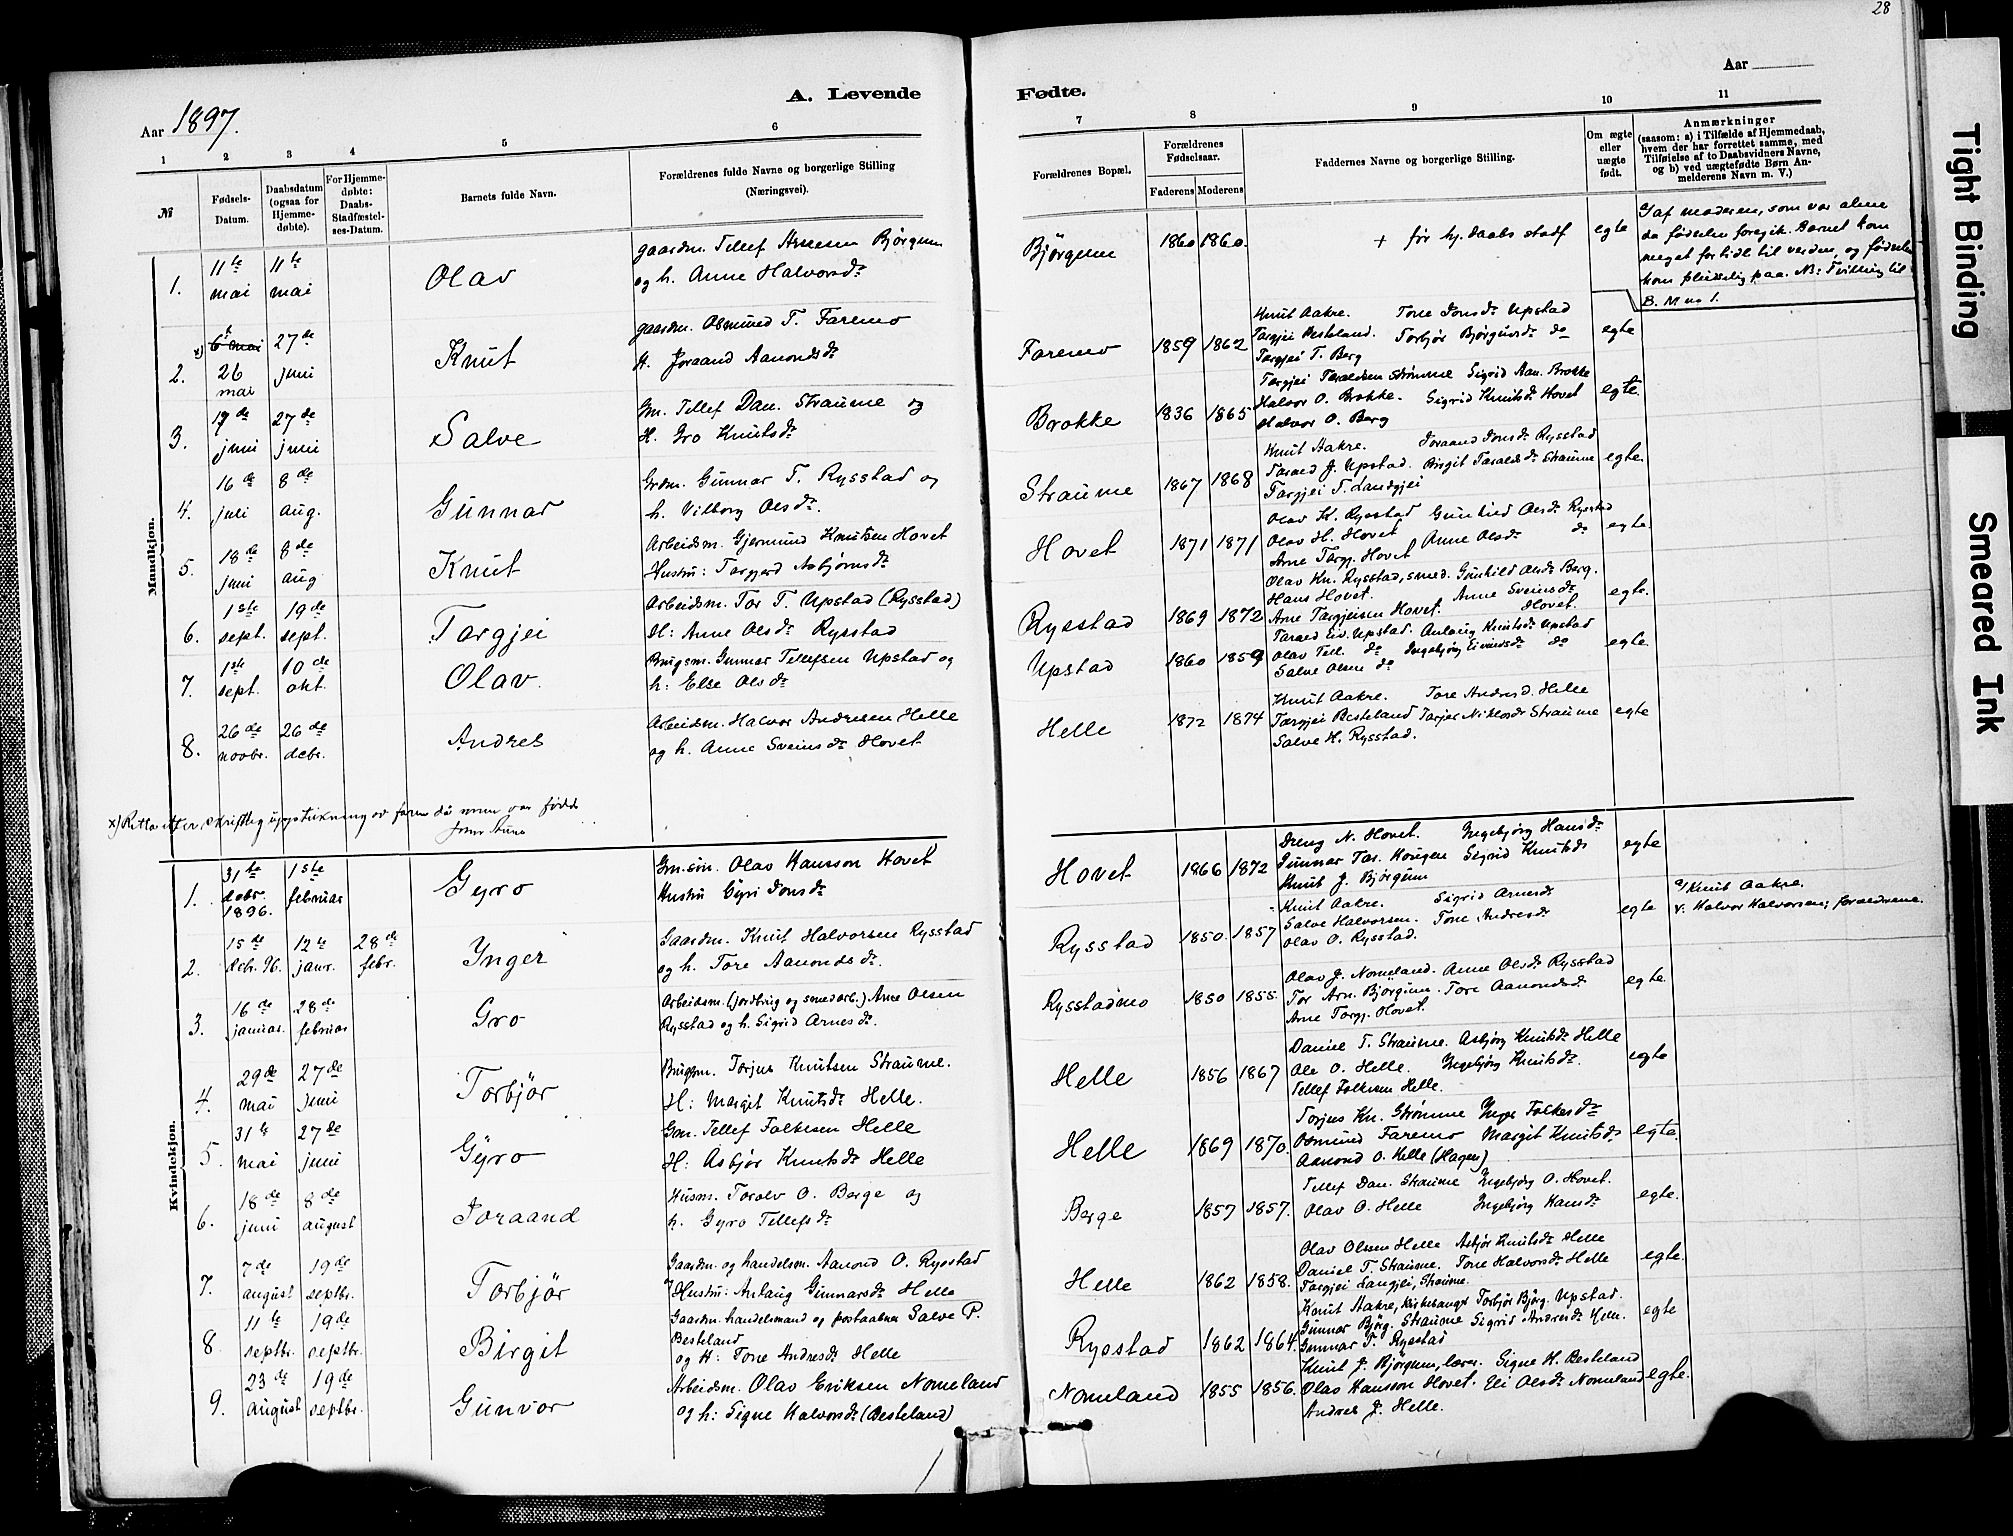 28
Aar
A. Levende
Fødte.
Aar 1897.
1 2 3 4 5 6
7 8 9 10 11
№
Fødsels-
Datum.
Daabsdatum
(ogsaa for
Hjemme-
døbte).
For Hjemme-
døbte:
Daabs-
Stadfæstel-
ses-Datum.
Barnets fulde Navn.
Forældrenes fulde Navne og borgerlige Stilling
(Næringsvei).
Forældrenes Bopæl.
Forældrenes
Fødselsaar.
Faderens Moderens
Faddernes Navne og borgerlige Stilling.
Om ægte
eller
uægte
født.
Anmærkninger
(saasom: a) i Tilfælde af Hjemmedaab,
hvem der har forrettet samme, med
Tilføielse af to Daabsvidners Navne,
og b) ved uægtefødte Børn An-
melderens Navn m. V.)
Mandkjøn.
1. 11te mai 11te mai Olav
gaardm. Tellef Arnesen Bjørgum
og h. Anne Halvorsdr
Bjørgum 1860 1860. + før hj. daabs stadf egte
af moderen, som var alene
da fødselen foregik. Barnet kom
meget for tidl til verden, og fødselen
kom pludselig paa. NB: Tvilling til
B. M no 1.
2. x) 6 mai 26 mai 27de juni Knut
gaardm. Osmund T. Faremo
H. Joraand Aanondsdr
Faremo 1859 1862 egte
Knut Aakre. Tone Jonsdr Upstad
Targjei Besteland. Torbjør Bjørgusdr do
Targjei T. Berg
3. 17de juni 27de juni Salve
Gm. Tellef Dan. Straume og
H. Gro Knutsdr
Brokke 1836 1865 egte.
Targjei Taraldsen Strømme Sigrid Aan. Brokke
Halvor O. Brokke. Sigrid Knutsdr Hovet
Halvor O. Berg
4. 16de juli 8de aug. Gunnar
Grdm. Gunnar T. Rysstad og
h. Vilborg Olsdr.
Straume 1867 1868 egte.
Knut Aakre. Joraand Jonsdr Rysstad
Tarald J. Upstad. Birgit Taraldsdr Straume
Targjei T. Langjei
5. 18de juni 8de aug Knut
Arbeidsm. Gjermund Knutsen Hovet
Hustru: Targjerd Asbjørnsdr
Hovet 1871 1871 egte
Olav K. Rysstad Gunhild Olsdr Rysstad
Olav H. Hovet Anne Olsdr do
Arne Targj. Hovet
6. 1ste sept. 19de sept. Targjei
Arbeidsm. Tor T. Upstad (Rysstad)
H: Anne Olsdr Rysstad
Rysstad 1869 1872 egte.
Olav Kn. Rysstad, smed. Gunhild Olsdr Berg.
Hans Hovet. Anne Sveinsdr
Arne Targjeisen Hovet. Hovet.
7. 1ste sept. 10de okt. Olav.
Brugsm. Gunnar Tellefsen Upstad og
h: Else Olsdr
Upstad 1860 1859 egte.
Tarald Eiv. Upstad. Anlaug Knutsdr Upstad
Olav Tell. do Ingebjørg Eivindsdr do
Salve Olsen do
8. 26de novbr. 26de debr. Andres
Arbeidsm. Halvor Andresen Helle
og h. Anne Sveinsdr Hovet
Helle 1872 1874 egte
Knut Aakre. Tore Andresd. Helle
Targjei Besteland Tarjer Niklosdr Straume
Salve H. Rysstad.
x) Retta etter skriftleg
Kvindekjøn.
1. 31te debr. 1896. 1ste februar Gyro
Gm.søn. Olav Hansson Hovet
Hustru Gyri Jonsdr
Hovet 1866 1872 egte
Dreng N. Hovet. Ingebjørg Hansdr
Gunnar Tar. Hougen Sigrid Knutsdr
Knut J. Bjørgum
2. 15de debr. 96. 12te janr. 28de febr. Ynger
Gaardm. Knut Halvorsen Rysstad
og h. Tore Aanondsdr.
Rysstad 1850. 1857 egte
Knut Aakre. Sigrid Arnesdr
Salve Halvorsen. Tone Andresdr
Olav O. Rysstad.
a) Knut Aakre.
v. Halvor Halvorsen; foraldrene.
3. 16de januar. 28de februar Gro
Arbeidsm. (jordbrug og smedarb.) Arne Olsen
Rysstad og h. Sigrid Arnesdr.
Rysstadmo 1850 1855. egte.
Olav J. Nomeland. Anne Olsdr Rysstad
Tor Arn. Bjørgum. Tore Aanondsdr
Arne Targj. Hovet.
4. 29de mai 27de juni Torbjør
Brugsm. Torjus Knutsen Straume.
H: Margit Knutsdr Helle.
Helle 1856 1867 egte
Daniel T. Straume. Asbjørg Knutsdr Helle
Ole O. Helle. Ingebjørg Knutsdr.
Tellef Folkesen Helle.
5. 31te mai 27de juni Gyro
Gm. Tellef Folkesen Helle
H: Asbjør Knutsdr Helle
Helle 1869 1870. egte.
Torjus Kn. Strømme Inger Folkesdr
Osmund Faremo Margit Knutsdr
Aanond O. Helle (Hagen)
6. 18de juni 8de august Joraand
Husm. Torolv O. Berge og
h. Gyro Tellefsdr
Berge 1857 1857. egte.
Tellef Dan. Straume Ingebjørg O. Hovet.
Olav O. Helle Ingebjørg Hansdr
7. 7de august 19de septbr. Torbjör
Gaardm. og handelsm. Aanond O. Rysstad
Hustru: Anlaug Gunnarsdr Helle
Helle 1862 1858. egte.
Olav Olssen Helle Asbjør Knutsdr Helle
Daniel T. Straume. Tone Halvorsdr Helle
Targjei Langjei, Straume.
8. 11te septbr. 19de septbr. Birgit
Gaardm. handelsmand og postaabner Salve P.
Besteland
og H: Tone Andresdr Helle
Rysstad 1862 1864. egte
Knut Aakre, kirkesanger Torbjør Bjørg. Upstad.
Gunnar Bjørg. Straume Sigrid Andresdr Helle.
Gunnar T. Rysstad
9. 23de august 19de septbr. Gunvor
Arbeidsm. Olav Eriksen Nomeland
og h: Signe Halvorsdr (Besteland)
Nomeland 1855 1856. egte.
Knut J. Bjørgum, lærer. Signe H. Besteland
Olav Hansson Hovet. Eli Olsdr Nomeland
Andres J. Helle.
Tight Binding
Smeared Ink